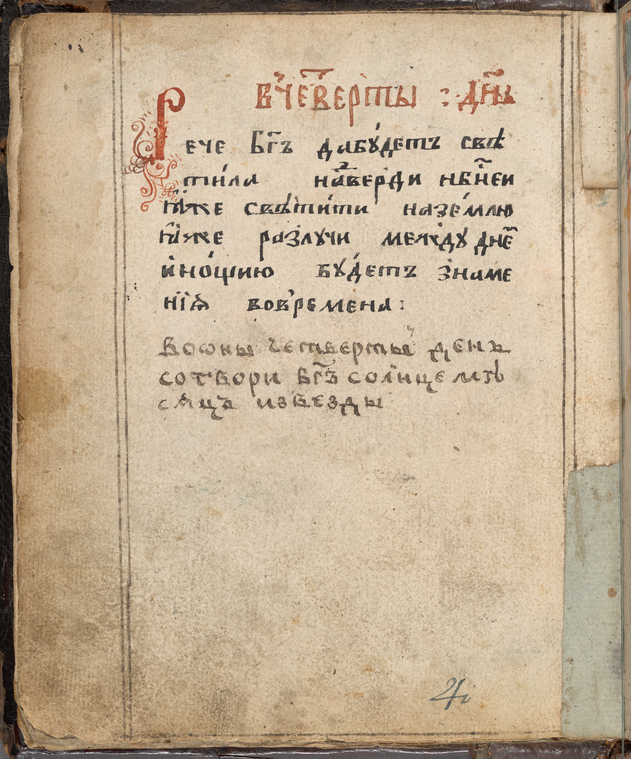 вчеверты : дн҃ь
Рече бг҃ъ дабу́детъ свѣ
ти́ла натверди нб҃нѣи
ꙗ́же свѣти́ти назе́млю
ꙗ́же разлучи между дне҃
и́но́щию бу́детъ знаме
нїѧ вовре́мена :
воѡны четвертыи день
сотвори бг҃ъ солнце мѣ
сѧцъ извезды
4i